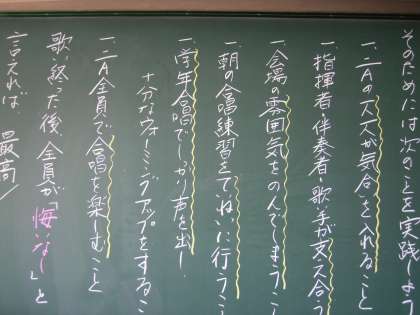 そのためには次のことを実践しよう
一、二Aの一人一人が気合を入れること
一、指揮者・伴奏者・歌い手が支え合う
一、会場の雰囲気をのんでしまうこ
一、朝の合唱練習をていねいに行うこ
一、学年合唱でしっかり声を出し、
十分なウォーミングアップをするこ
一、二A全員で合唱を楽しむこと
歌い終った後、全員が「悔いなし」と
言えれば、最高！